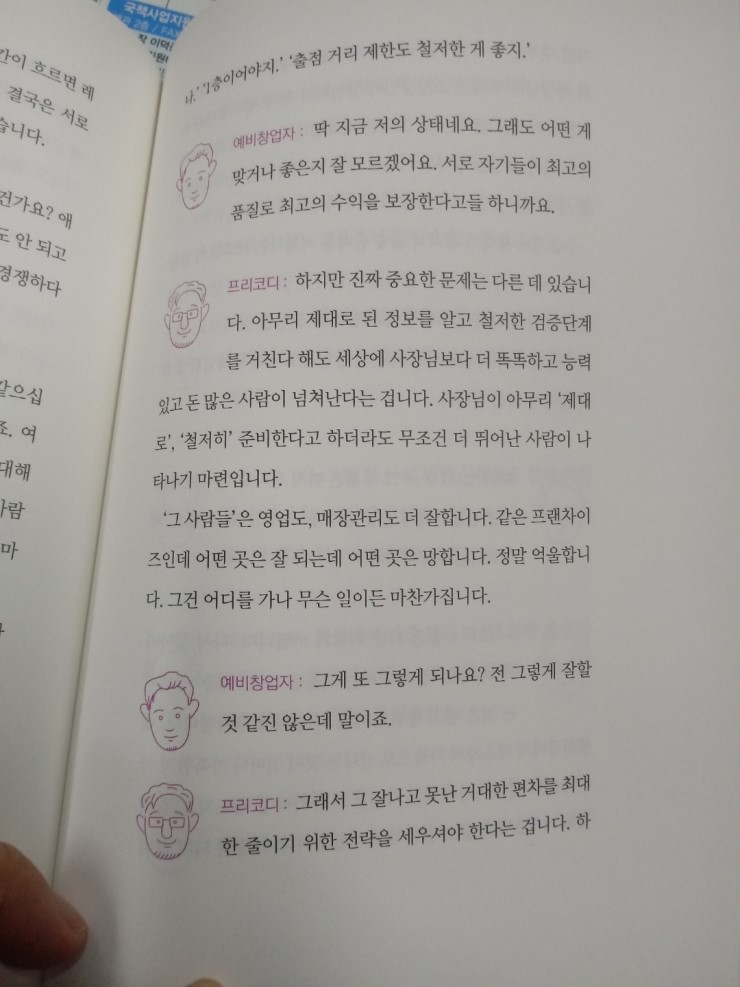 국책사업지원
2층 / FAX
간이 흐르면 레
결국은 서로
습니다.
건가요? 애
도 안 되고
경쟁하다
같으십
죠. 여
대해
사람
마
나.’ ‘1층이어야지.’ ‘출점 거리 제한도 철저한 게 좋지.’
예비창업자 : 딱 지금 저의 상태네요. 그래도 어떤 게
맞거나 좋은지 잘 모르겠어요. 서로 자기들이 최고의
품질로 최고의 수익을 보장한다고들 하니까요.
프리코디 : 하지만 진짜 중요한 문제는 다른 데 있습니
다. 아무리 제대로 된 정보를 알고 철저한 검증단계
를 거친다 해도 세상에 사장님보다 더 똑똑하고 능력
있고 돈 많은 사람이 넘쳐난다는 겁니다. 사장님이 아무리 ‘제대
로’, ‘철저히’ 준비한다고 하더라도 무조건 더 뛰어난 사람이 나
타나기 마련입니다.
‘그 사람들’은 영업도, 매장관리도 더 잘합니다. 같은 프랜차이
즈인데 어떤 곳은 잘 되는데 어떤 곳은 망합니다. 정말 억울합니
다. 그건 어디를 가나 무슨 일이든 마찬가집니다.
예비창업자 : 그게 또 그렇게 되나요? 전 그렇게 잘할
것 같진 않은데 말이죠.
프리코디 : 그래서 그 잘나고 못난 거대한 편차를 최대
한 줄이기 위한 전략을 세우셔야 한다는 겁니다. 하